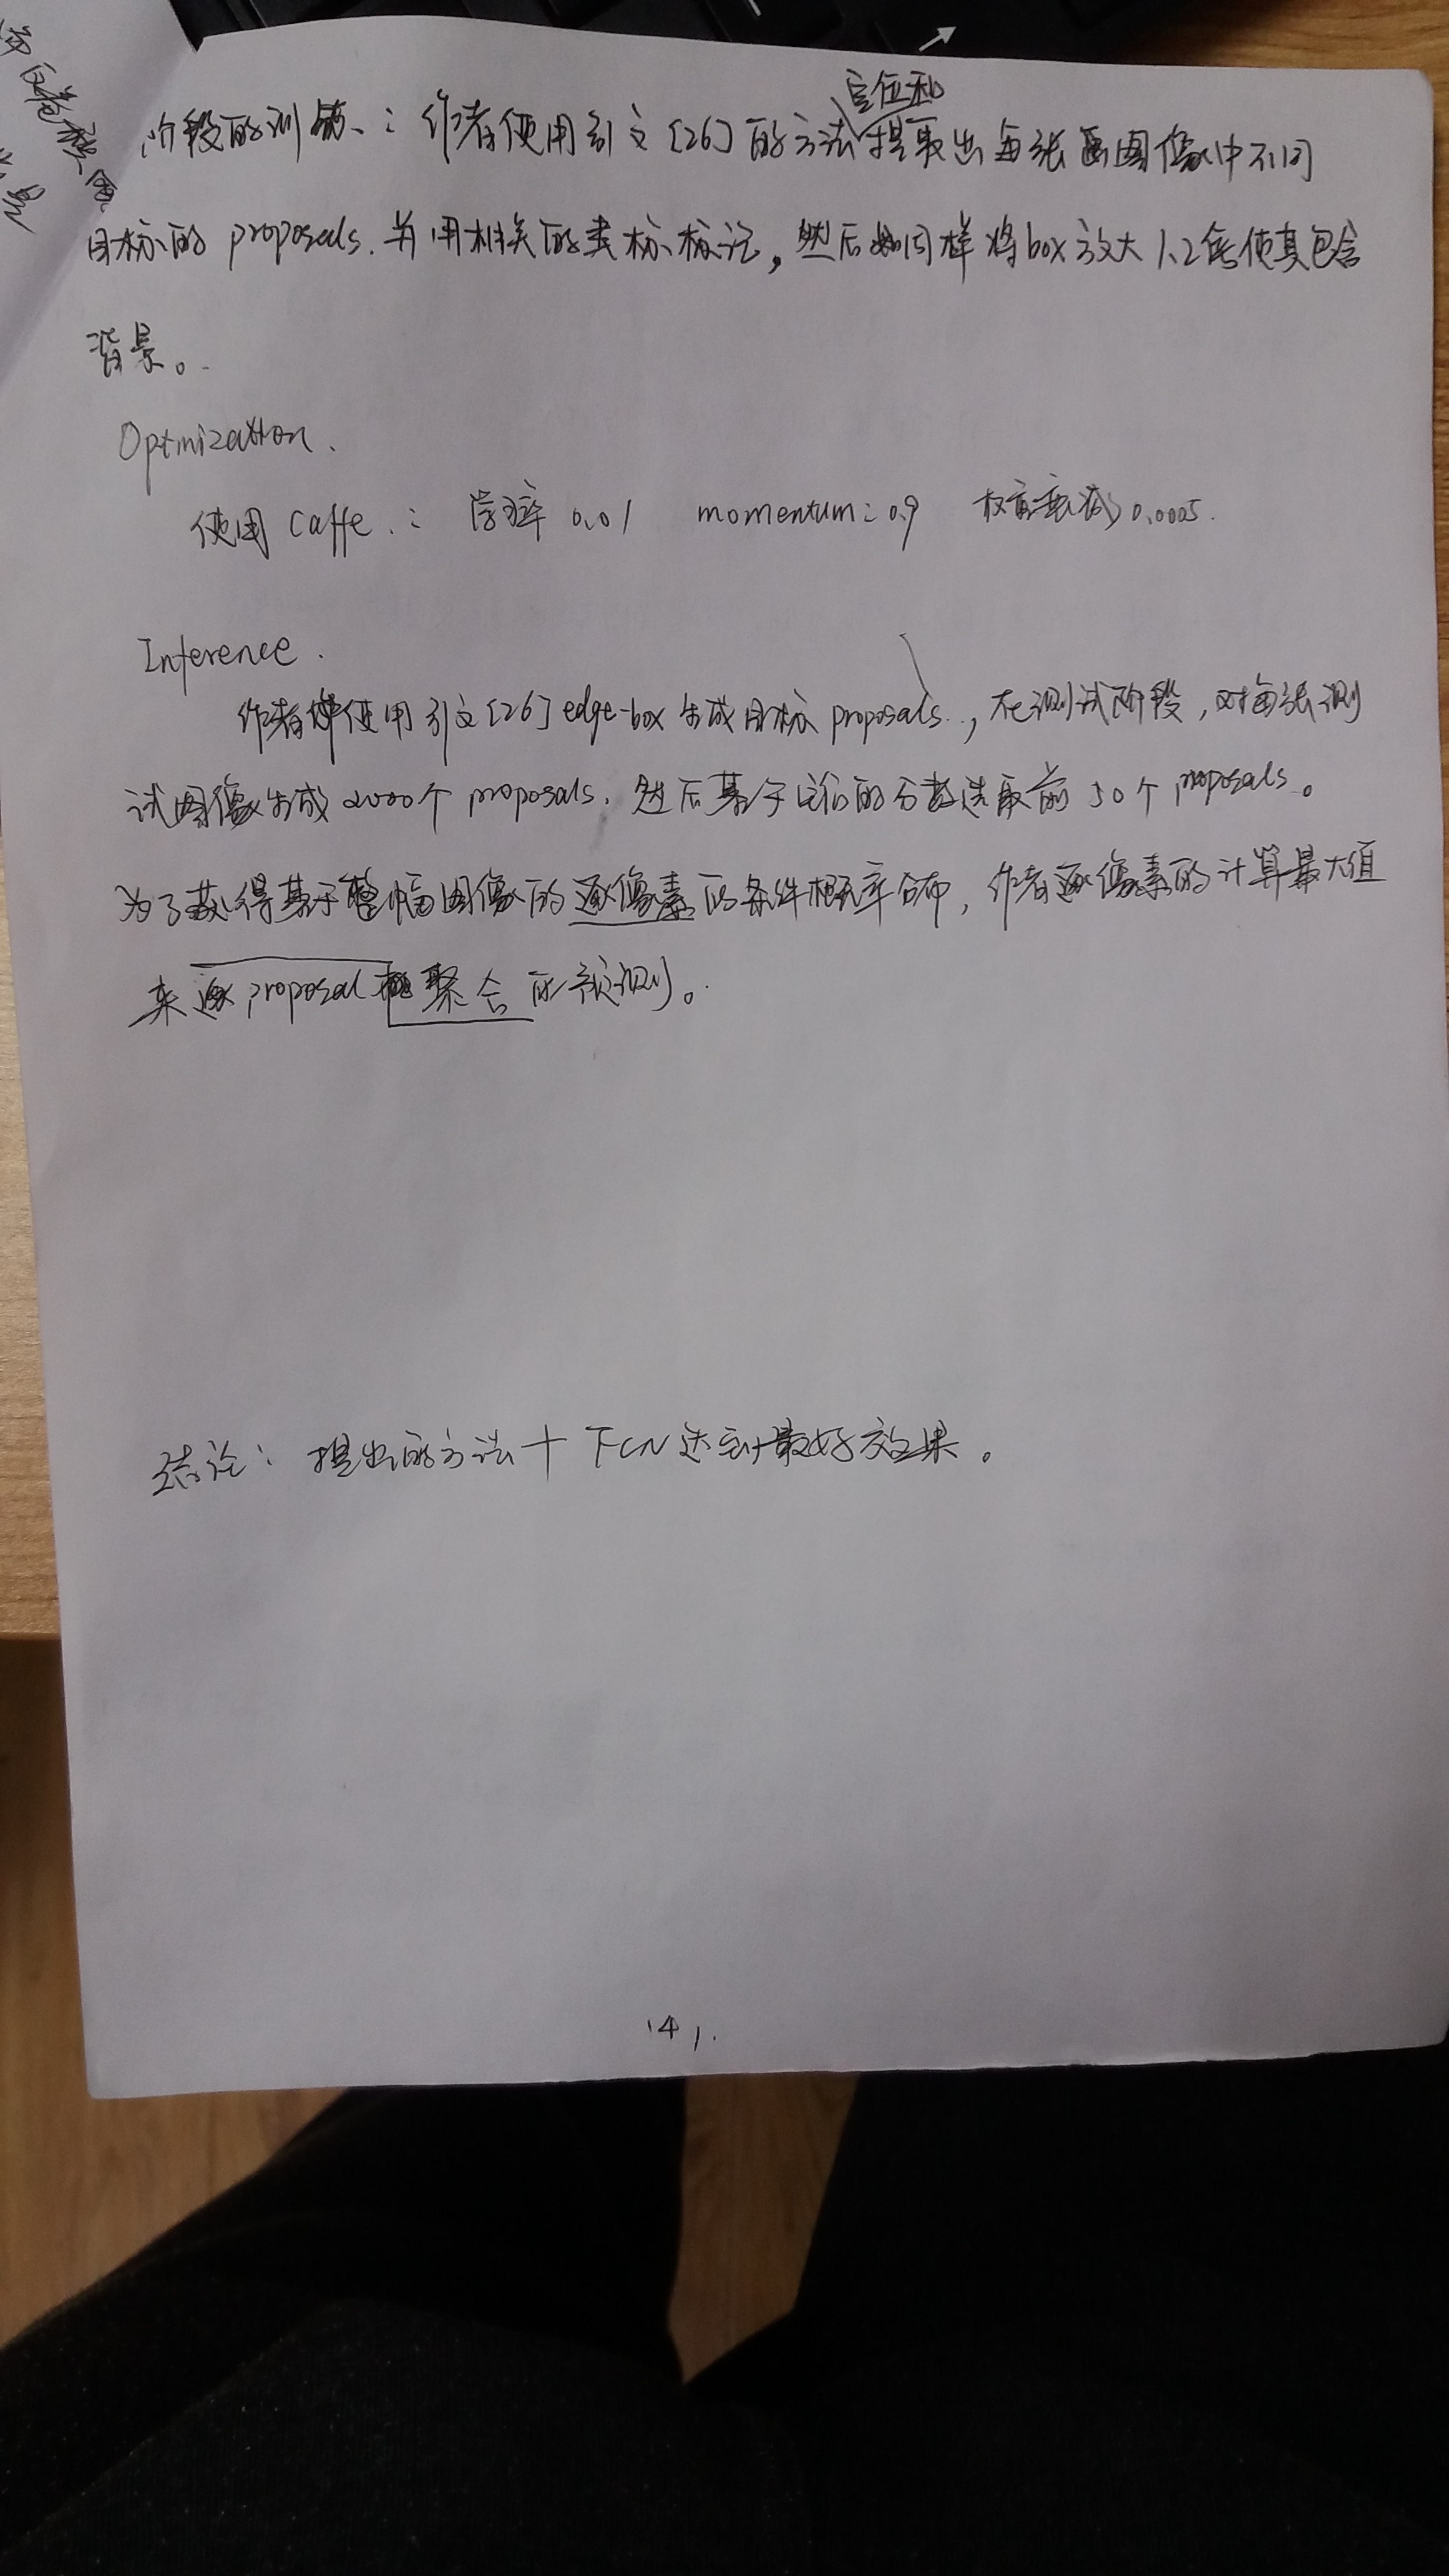 定位和
阶段的训练：作者使用引文[26]的方法提取出每张图像中不同
目标的 proposals. 并用相关的类标标记，然后同样将box放大1.2倍使其包含
背景。
Optmization.
使用 Caffe.： 学习率 0.01 momentum=0.9 权重衰减 0.0005.
Inference.
作者使用引文[26] edge-box 生成目标 proposals.，在测试阶段，对每张测
试图像生成2000个 proposals. 然后基于它们的分数选取前50个 proposals。
为了获得基于整幅图像的逐像素的条件概率分布，作者逐像素的计算最大值
来逐proposal聚合的预测。
结论：提出的方法＋FCN达到最好效果。
4